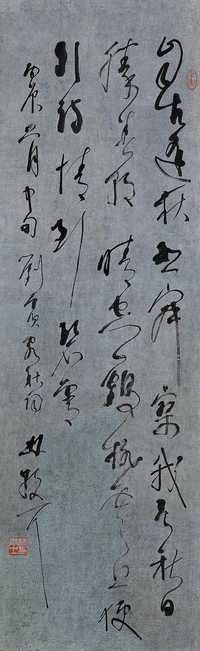 自古逢秋悲寂寥我言秋日
勝春朝晴空一鶴排雲上便
引詩情到碧霄
月中旬劉賓客秋詞